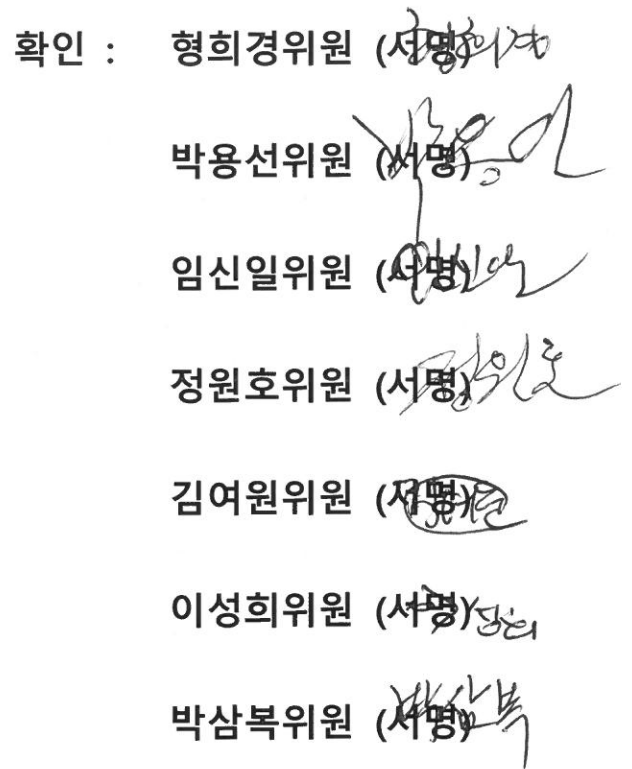 확인 : 형희경위원 (서명)
박용선위원 (서명)
임신일위원 (서명)
정원호위원 (서명) 정원호
김여원위원 (서명)
이성희위원 (서명)
박삼복위원 (서명) 박삼복